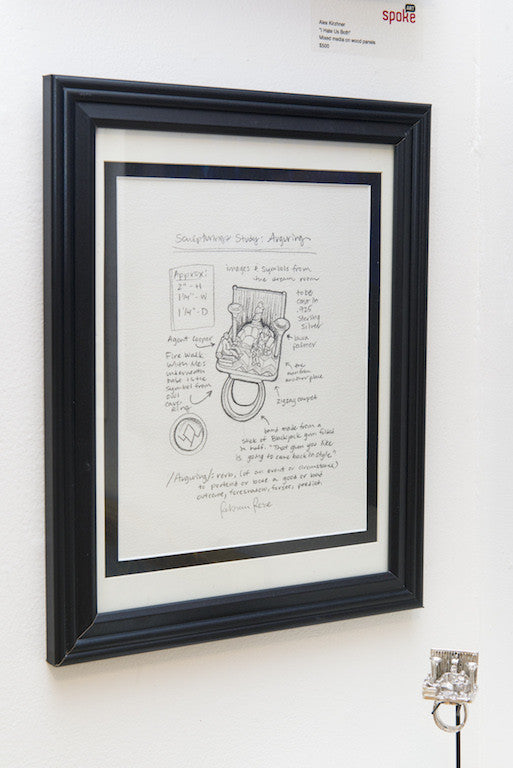 Alex Kirchner
"I Hate Us Both"
Mixed media on wood panels
$500
spoke ART
Sculpturings Study: Auguring
Approx:
2" - H
1 1/4" - W
1 1/4" - D
images & symbols from
the dream room
to be
cast in
.925
Sterling
Silver
Laura
palmer
Agent Cooper
Fire Walk
With Me:
underneath
base is the
symbol from
owl
cave
Ring
the
man from
another place
zigzag carpet
band made from a
stick of Blackjack gum folded
in half. "That gum you like
is going to come back in style"
/Auguring/: verb, (of an event or circumstance)
to portend or bode a good or bad
outcome, foreshadow, foretell, predict.